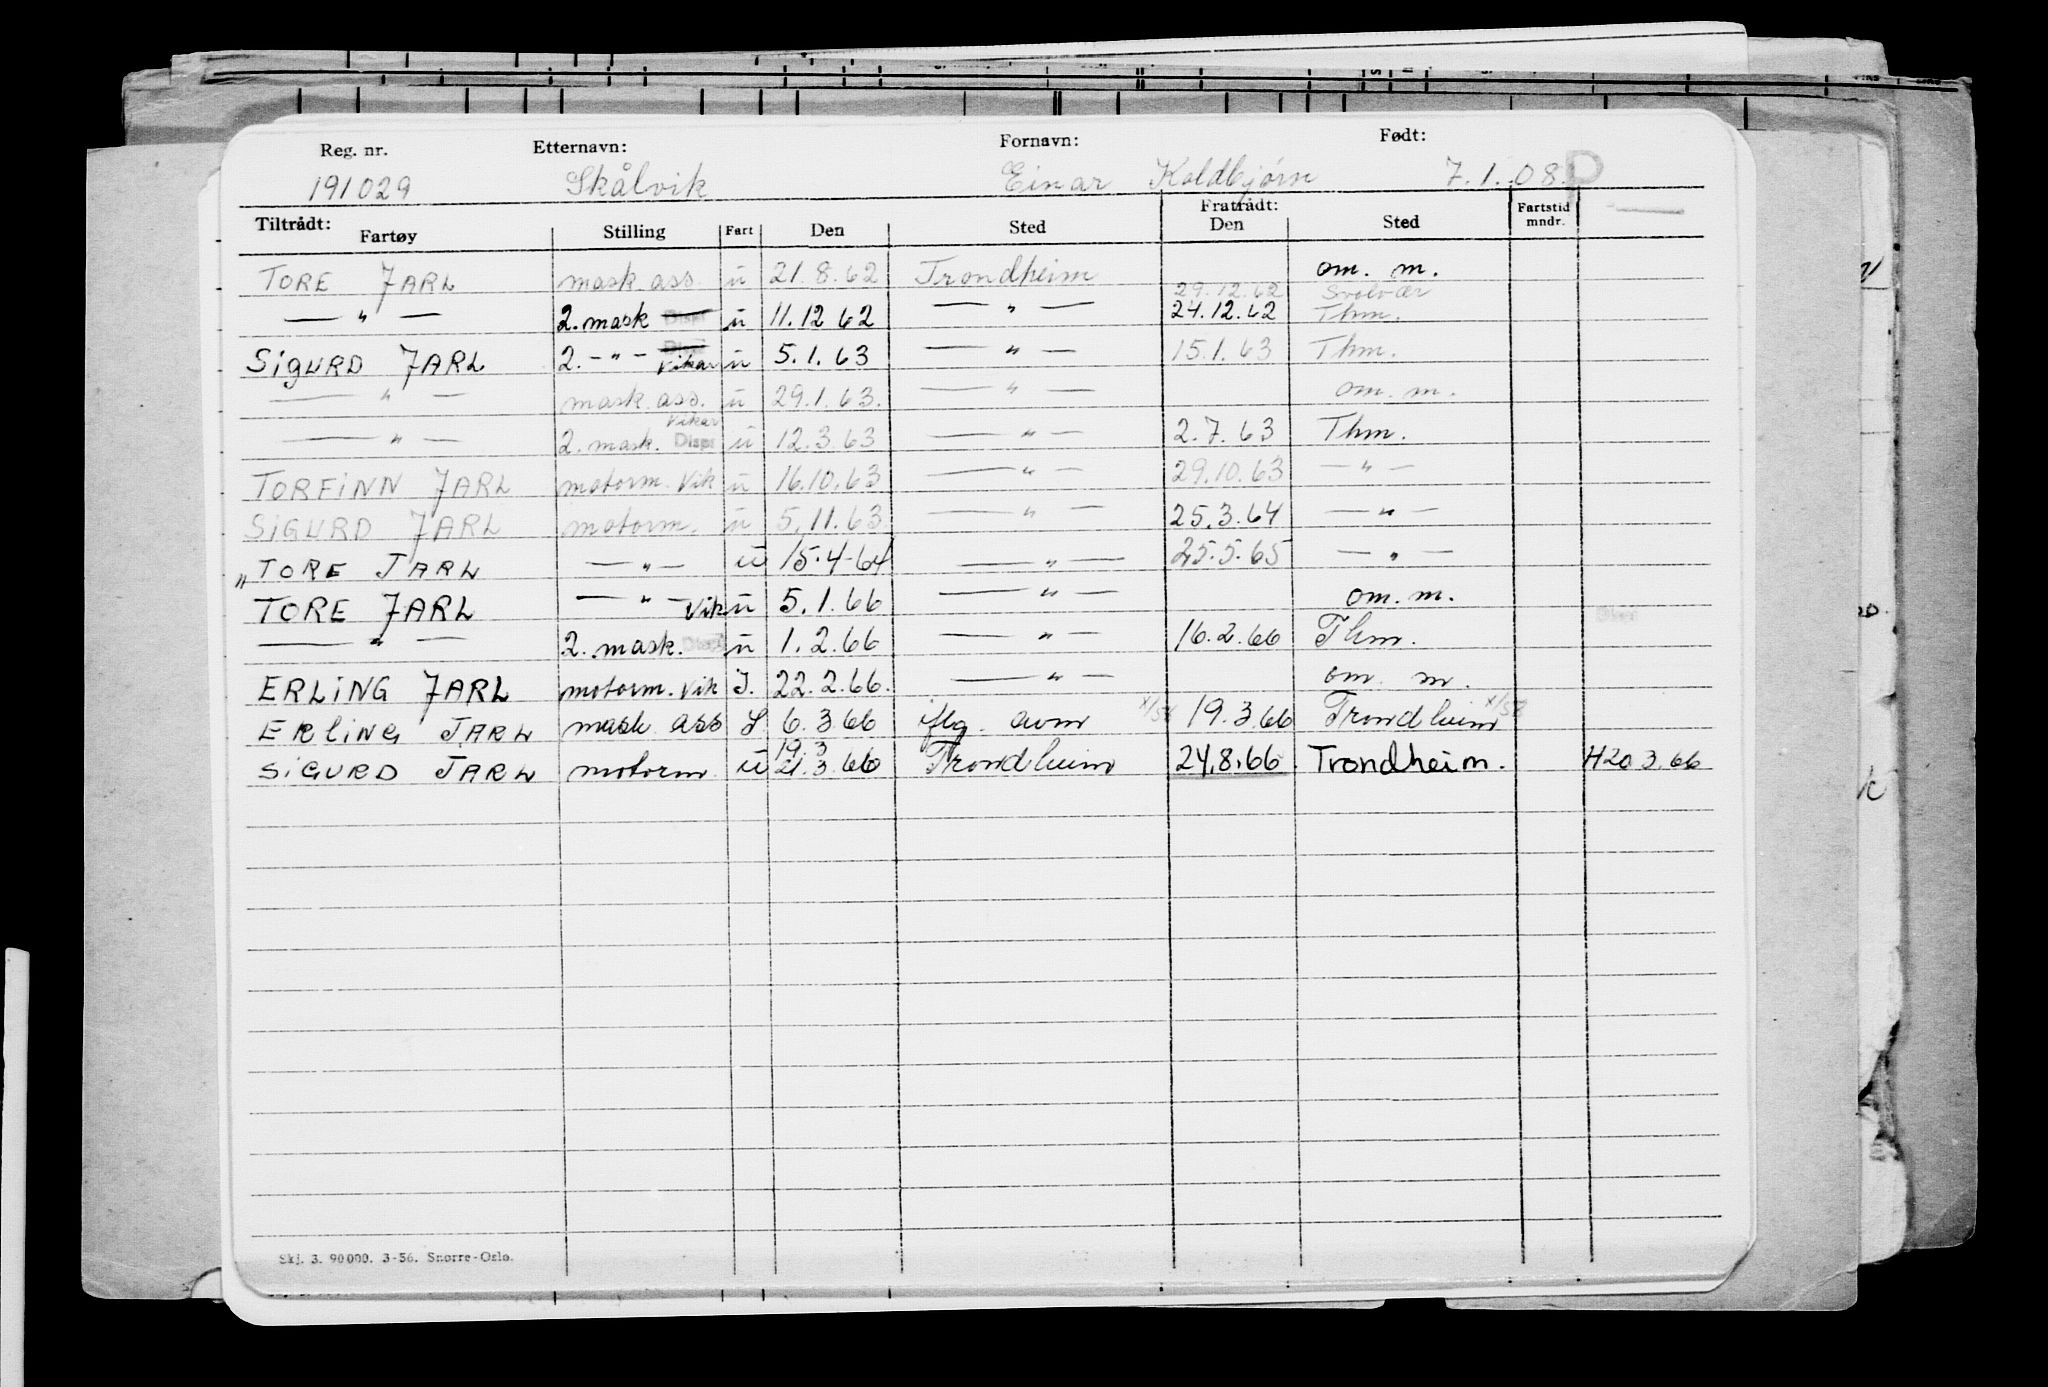 Reg. nr. Etternavn: Fornavn: Født:
191029 Skålvik Einar Koldbjørn 7.1.08 P
Tiltrådt: Fratrådt:
Fartøy Stilling Fart Den Sted Den Sted Fartstid mndr.
TORE JARL mask. ass. u 21.8.62 Trondheim om. m.
29.12.62 Svolvær
— " — 2. mask Disp u 11.12 62 — " — 24.12.62 Thm.
SIGURD JARL 2. – " – Disp Vikar u 5.1.63 — " — 15.1.63 Thm.
— " — mask. ass. u 29.1.63. — " — om. m.
— " — 2. mask. Vikar Disp u 12.3.63 — " — 2.7.63 Thm.
TORFINN JARL motorm. Vik u 16.10.63 — " — 29.10.63 — " —
SIGURD JARL motorm. u 5.11.63 — " — 25.3.64 — " —
" TORE JARL — " — u 15.4-64 — " — 25.5.65 — " —
TORE JARL — " — Vik u 5.1.66 — " — om. m.
— " — 2. mask. Disp u 1.2.66 — " — 16.2.66 Thm.
ERLING JARL motorm. Vik J. 22.2.66. — " — om. m.
ERLING JARL mask ass 6.3.66 iflg. avm 19.3.66 Trondheim
SIGURD JARL motorm u 19.3 21.3.66 Trondheim 24.8.66. Trondheim. H20 3.66
Skj. 3. 90 000. 3-56. Snorre-Oslo.